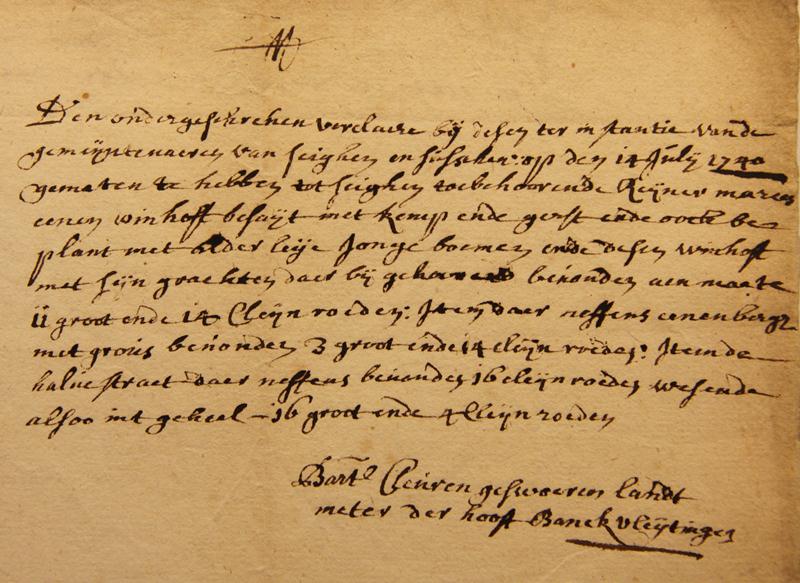 Den ondergeschrehen verclaere bij desen ter instantie vande
gemeijntenaeren van seighen en susselen: op den 14 Julij 1740
gematen te hebben tot seighen toebehoorende Reijner marees
eenen winhoff besaijt met kemp ende gerst ende oock be
plant met alderleije Jonge boemen ende desen winhoff
met sijn grachten daer bij gehoorend bevonden aen maete
ii groot ende 14 Cleijn roeden: Item daer neffens eenen bergh
met grous bevonden 3 groot ende 14 cleijn roeden: Item de
halve straet daer neffens bevonden 16 cleijn roeden wesende
alsoo int geheel - 16 groot ende 4 Cleijn roeden
Bart. Cleuren geswoeren landt
meter der hooft Banck vleijtingen